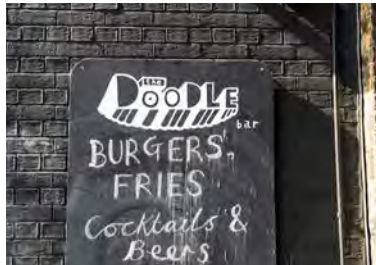 the
DOODLE
bar
BURGERS,
FRIES
Cocktails &
Beers